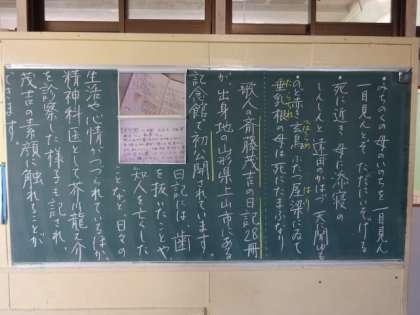 みちのくの母のいのちを一目見ん
一目見んとぞただにいそげる
死に近き母に添寝の
しんしんと遠田のかはづ天に聞ゆる
のど赤き玄鳥ふたつ屋梁にゐて
垂乳根の母は死にたまふなり
歌人の斎藤茂吉の日記28冊
が出身地の山形県上山市にある
記念館で初公開されています。
日記には、歯
を抜いたことや、
知人を亡くした
ことなど、日々の
生活や心情がつづられているほか、
精神科医として芥川龍之介
を診察した様子も記され、
茂吉の素顔に触れることが
できます。